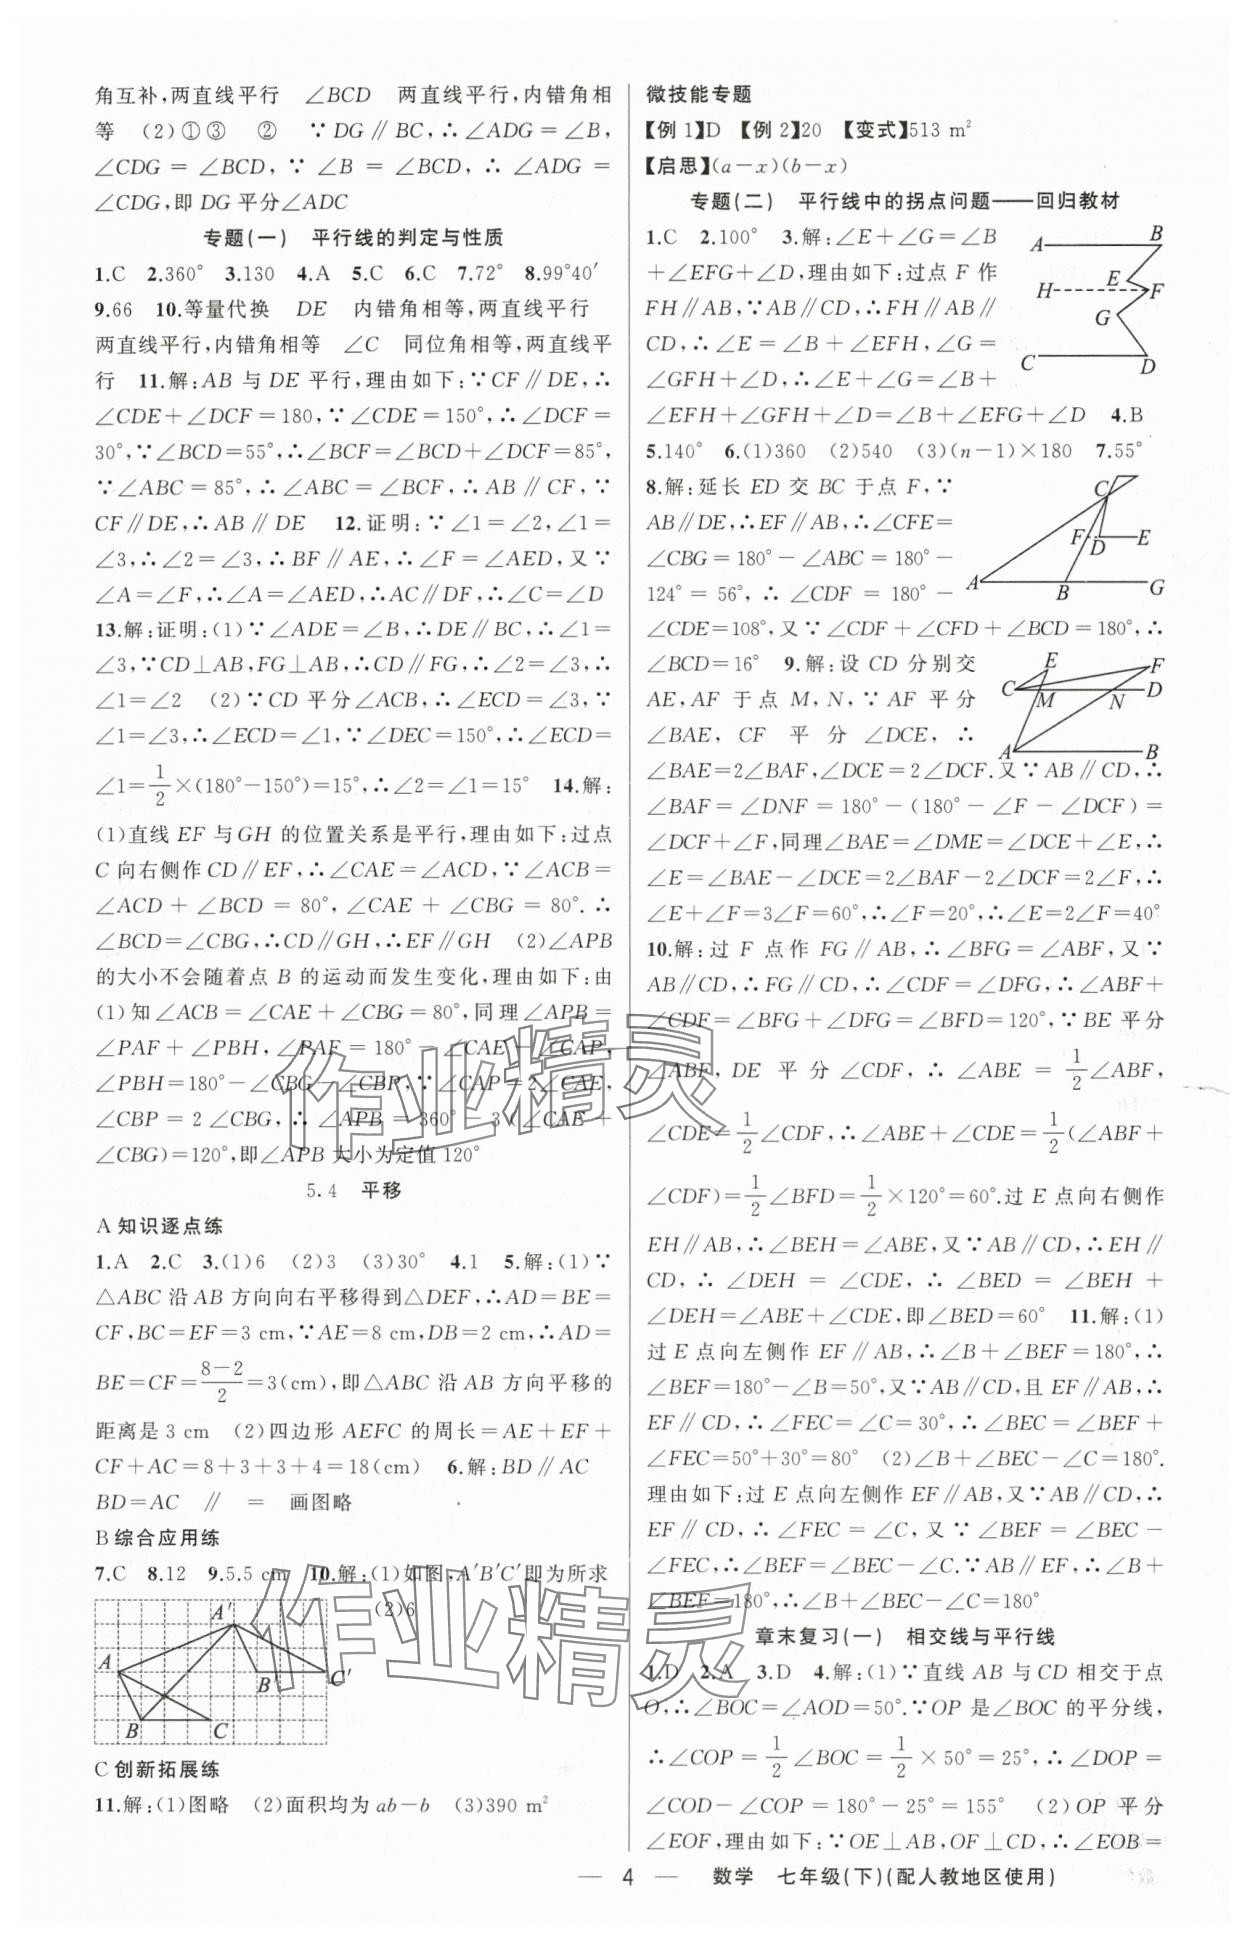 角互补,两直线平行　∠BCD　两直线平行,内错角相
等　(2)①③　②　∵DG∥BC,∴∠ADG=∠B,
∠CDG=∠BCD,∵∠B=∠BCD,∴∠ADG=
∠CDG,即DG平分∠ADC
专题(一)　平行线的判定与性质
1.C　2.360°　3.130　4.A　5.C　6.C　7.72°　8.99°40′
9.66　10.等量代换　DE　内错角相等,两直线平行
两直线平行,内错角相等　∠C　同位角相等,两直线平
行　11.解:AB与DE平行,理由如下:∵CF∥DE,∴
∠CDE+∠DCF=180,∵∠CDE=150°,∴∠DCF=
30°,∵∠BCD=55°,∴∠BCF=∠BCD+∠DCF=85°,
∵∠ABC=85°,∴∠ABC=∠BCF,∴AB∥CF,∵
CF∥DE,∴AB∥DE　12.证明:∵∠1=∠2,∠1=
∠3,∴∠2=∠3,∴BF∥AE,∴∠F=∠AED,又∵
∠A=∠F,∴∠A=∠AED,∴AC∥DF,∴∠C=∠D
13.解:证明:(1)∵∠ADE=∠B,∴DE∥BC,∴∠1=
∠3,∵CD⊥AB,FG⊥AB,∴CD∥FG,∴∠2=∠3,∴
∠1=∠2　(2)∵CD平分∠ACB,∴∠ECD=∠3,∵
∠1=∠3,∴∠ECD=∠1,∵∠DEC=150°,∴∠ECD=
∠1=1/2×(180°-150°)=15°,∴∠2=∠1=15°　14.解:
(1)直线EF与GH的位置关系是平行,理由如下:过点
C向右侧作CD∥EF,∴∠CAE=∠ACD,∵∠ACB=
∠ACD+∠BCD=80°,∠CAE+∠CBG=80°.∴
∠BCD=∠CBG,∴CD∥GH,∴EF∥GH　(2)∠APB
的大小不会随着点B的运动而发生变化,理由如下:由
(1)知∠ACB=∠CAE+∠CBG=80°,同理∠APB=
∠PAF+∠PBH,∠PAF=180°-∠CAE-∠CAP,
∠PBH=180°-∠CBG-∠CBP,∵∠CAP=2∠CAE,
∠CBP=2∠CBG,∴∠APB=360°-3(∠CAE+
∠CBG)=120°,即∠APB大小为定值120°
5.4　平移
A知识逐点练
1.A　2.C　3.(1)6　(2)3　(3)30°　4.1　5.解:(1)∵
△ABC沿AB方向向右平移得到△DEF,∴AD=BE=
CF,BC=EF=3 cm,∵AE=8 cm,DB=2 cm,∴AD=
BE=CF=(8-2)/2=3(cm),即△ABC沿AB方向平移的
距离是3 cm　(2)四边形AEFC的周长=AE+EF+
CF+AC=8+3+3+4=18(cm)　6.解:BD∥AC
BD=AC　∥　=　画图略
B综合应用练
7.C　8.12　9.5.5 cm　10.解:(1)如图,A′B′C′即为所求
(2)6
A′
A
B′
C′
B
C
C创新拓展练
11.解:(1)图略　(2)面积均为ab-b　(3)390 m²
微技能专题
【例1】D　【例2】20　【变式】513 m²
【启思】(a-x)(b-x)
专题(二)　平行线中的拐点问题——回归教材
1.C　2.100°　3.解:∠E+∠G=∠B
+∠EFG+∠D,理由如下:过点F作
FH∥AB,∵AB∥CD,∴FH∥AB∥
CD,∴∠E=∠B+∠EFH,∠G=
∠GFH+∠D,∴∠E+∠G=∠B+
∠EFH+∠GFH+∠D=∠B+∠EFG+∠D　4.B
A
B
E
H
F
G
C
D
5.140°　6.(1)360　(2)540　(3)(n-1)×180　7.55°
8.解:延长ED交BC于点F,∵
AB∥DE,∴EF∥AB,∴∠CFE=
∠CBG=180°-∠ABC=180°-
124°=56°,∴∠CDF=180°-
∠CDE=108°,又∵∠CDF+∠CFD+∠BCD=180°,∴
C
F
D
E
A
B
G
∠BCD=16°　9.解:设CD分别交
AE,AF于点M,N,∵AF平分
∠BAE,CF平分∠DCE,∴
E
F
C
M
N
D
A
B
∠BAE=2∠BAF,∠DCE=2∠DCF.又∵AB∥CD,∴
∠BAF=∠DNF=180°-(180°-∠F-∠DCF)=
∠DCF+∠F,同理∠BAE=∠DME=∠DCE+∠E,∴
∠E=∠BAE-∠DCE=2∠BAF-2∠DCF=2∠F,∴
∠E+∠F=3∠F=60°,∴∠F=20°,∴∠E=2∠F=40°
10.解:过F点作FG∥AB,∴∠BFG=∠ABF,又∵
AB∥CD,∴FG∥CD,∴∠CDF=∠DFG,∴∠ABF+
∠CDF=∠BFG+∠DFG=∠BFD=120°,∵BE平分
∠ABF,DE平分∠CDF,∴∠ABE=1/2∠ABF,
∠CDE=1/2∠CDF,∴∠ABE+∠CDE=1/2(∠ABF+
∠CDF)=1/2∠BFD=1/2×120°=60°.过E点向右侧作
EH∥AB,∴∠BEH=∠ABE,又∵AB∥CD,∴EH∥
CD,∴∠DEH=∠CDE,∴∠BED=∠BEH+
∠DEH=∠ABE+∠CDE,即∠BED=60°　11.解:(1)
过E点向左侧作EF∥AB,∴∠B+∠BEF=180°,∴
∠BEF=180°-∠B=50°,又∵AB∥CD,且EF∥AB,∴
EF∥CD,∴∠FEC=∠C=30°,∴∠BEC=∠BEF+
∠FEC=50°+30°=80°　(2)∠B+∠BEC-∠C=180°.
理由如下:过E点向左侧作EF∥AB,又∵AB∥CD,∴
EF∥CD,∴∠FEC=∠C,又∵∠BEF=∠BEC-
∠FEC,∴∠BEF=∠BEC-∠C.∵AB∥EF,∴∠B+
∠BEF=180°,∴∠B+∠BEC-∠C=180°
章末复习(一)　相交线与平行线
1.D　2.A　3.D　4.解:(1)∵直线AB与CD相交于点
O,∴∠BOC=∠AOD=50°.∵OP是∠BOC的平分线,
∴∠COP=1/2∠BOC=1/2×50°=25°,∴∠DOP=
∠COD-∠COP=180°-25°=155°　(2)OP平分
∠EOF,理由如下:∵OE⊥AB,OF⊥CD,∴∠EOB=
— 4 —　数学　七年级(下)(配人教地区使用)
作业精灵
作业精灵